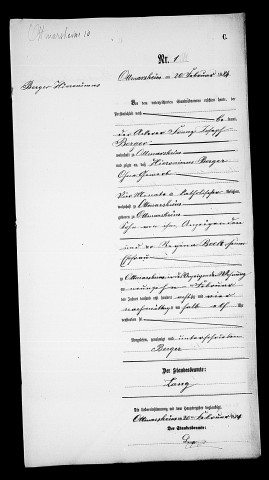 Ottmarsheim 10
C.
Nr. 1
Ottmarsheim am 20 Februar 1884
Berger Hieronimus
Vor dem unterzeichneten Standesbeamten erschien heute, der
Persönlichkeit nach
kannt,
der Ackerer Franz Joseph
Berger
wohnhaft zu Ottmarsheim
und zeigte an, daß Hieronimus Berger
Ohne Gewerb
Vier Monate alt, katholischer Religion,
wohnhaft zu Ottmarsheim
geboren zu Ottmarsheim
Sohn von ihm Anzeigenden
und der Regina Beck seiner
Ehefrau
zu Ottmarsheim in des Anzeigenden Wohnung
am neunzehn Februar
des Jahres tausend acht hundert achtzig und vier
nachmittags um halb acht Uhr
verstorben sei
Vorgelesen, genehmigt und unterschrieben
Berger
Der Standesbeamte:
Lang
Die Uebereinstimmung mit dem Hauptregister beglaubigt.
Ottmarsheim am 20ten Februar 1884
Der Standesbeamte:
Lang